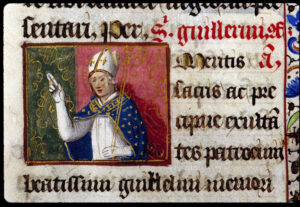 sentari, Per, S. guillermi
Mentis A,
sactis ac pre
cipue exulta
tes patrocinij
beatissimi guillelmi memori